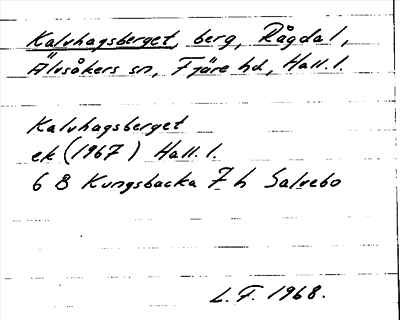 Kalvhagsberget, berg, Rågdal,
Älvsåkers sn, Fjäre hd, Hall. l.
Kalvhagsberget
ek (1967) Hall. l.
6 B Kungsbacka 7 h Salvebo
L. F. 1968.